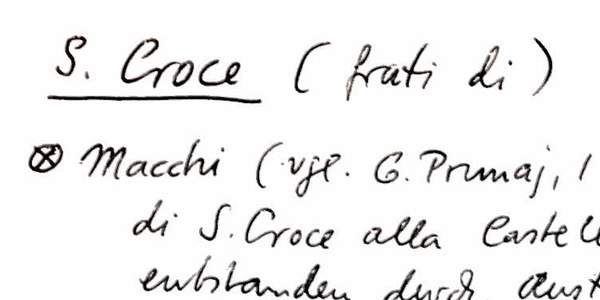 S. Croce (frati di)
⊗ Macchi (vgl. G. Prunaj, I
di S. Croce alla Castell
entstanden durch Aust